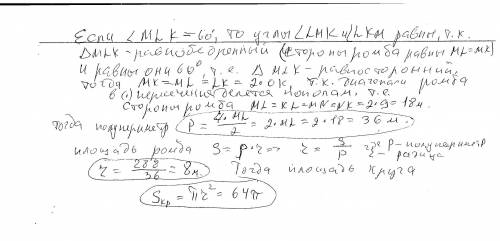 Если ∠MLK=60°, то углы ∠LMK и ∠LKM равны, т.к.
ΔMLK - равнобедренный (стороны ромба равны ML=MK)
и равны они 60° т.е. Δ MLK - равносторонний.
Тогда MK=ML=LK=2·OK, т.к. диагонали ромба
в () пересечения делятся пополам, т.е.
Стороны ромба ML=KL=MN=NK=2·9=18м.
Тогда полупериметр P = 4·ML/2 = 2·ML = 2·18 = 36 м.
площадь ромба S = p·r => r = S/P где P-полупериметр
r = 288/36 = 8м Тогда площадь круга
Sкр = πr² = 64π